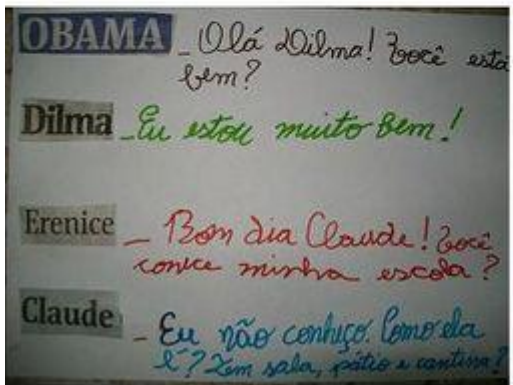 OBAMA - Olá Dilma! Você está
bem?
Dilma - Eu estou muito bem!
Erenice - Bom dia Claude! Você
conhce minha escola?
Claude - Eu não conheço. Como ela
é? Tem sala, pátio e cantina?